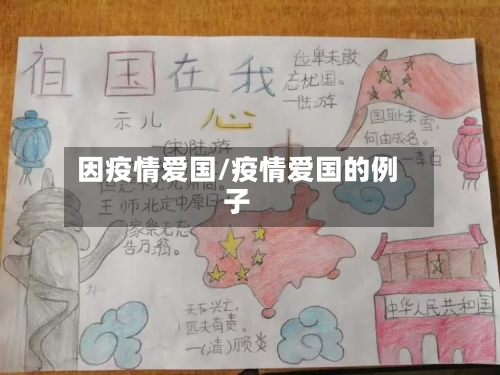 祖国在我
心
位卑未敢
忘忧国。
—陆游
国耻未雪,
何由成名。
—李白
示儿
(宋)陆游
因疫情爱国/疫情爱国的例
子
王师北定中原日
家祭无忘
告乃翁。
天下兴亡,
匹夫有责。
—(清)顾炎
中华人民共和国